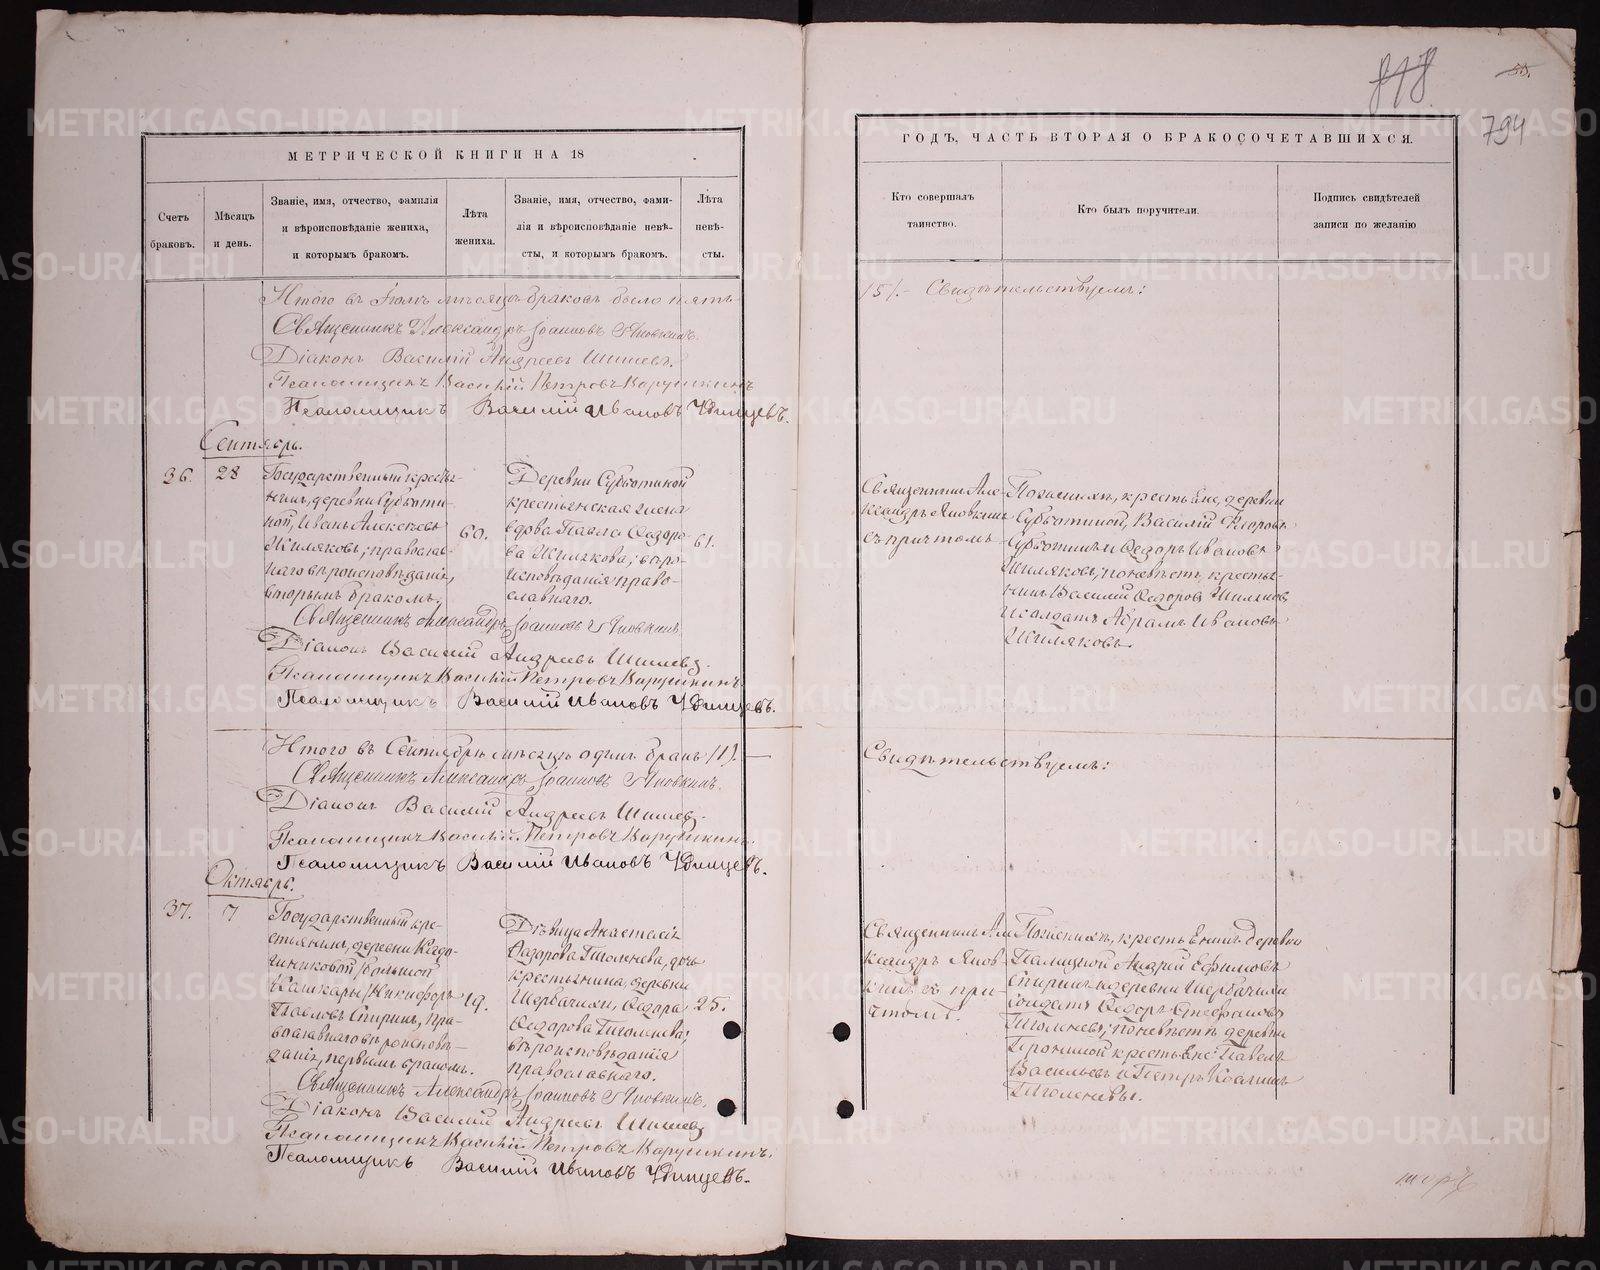 МЕТРИЧЕСКОЙ КНИГИ НА 18
Счетъ браковъ.
Мѣсяцъ и день.
Званіе, имя, отчество, фамилія и вѣроисповѣданіе жениха, и которымъ бракомъ.
Лѣта жениха.
Званіе, имя, отчество, фамилія и вѣроисповѣданіе невѣсты, и которымъ бракомъ.
Лѣта невѣсты.
Итого въ мѣсяцѣ браковъ было пять
Священникъ Александръ Іоанновъ Яновкинъ.
Діаконъ Василій Андреевъ Шишевъ.
Псаломщикъ Василій Петровъ Варушкинъ
Псаломщикъ Василій Ивановъ Удинцевъ.
Сентябрь.
36.
28
Государственный кресть-
янинъ, деревни Субботи-
ной, Иванъ Алексѣевъ
Жиляковъ; православ-
наго вѣроисповѣданія,
вторымъ бракомъ.
60.
Деревни Субботиной
крестьянская жена
вдова Павла Ѳедоро-
ва Жилякова; вѣро-
исповѣданія право-
славнаго.
61.
Священникъ Александръ Іоанновъ Яновкинъ
Діаконъ Василій Андреевъ Шишевъ.
Псаломщикъ Василій Петровъ Варушкинъ
Псаломщикъ Василій Ивановъ Удинцевъ.
Итого въ Сентябрѣ мѣсяцѣ одинъ бракъ /1/.
Священникъ Александръ Іоанновъ Яновкинъ.
Діаконъ Василій Андреевъ Шишевъ.
Псаломщикъ Василій Петровъ Варушкинъ.
Псаломщикъ Василій Ивановъ Удинцевъ.
Октябрь.
37.
7
Государственный кре-
стьянинъ, деревни
/Большой
Кашкары/ Никифоръ
Павловъ Спиринъ, пра-
вославнаго вѣроисповѣ-
данія, первымъ бракомъ.
19.
Дѣвица Анастасія
Ѳедорова дочь
крестьянина, деревни
Щербачихи, Ѳедора
Ѳедорова
вѣроисповѣданія
православнаго.
25.
Священникъ Александръ Іоанновъ Яновкинъ.
Діаконъ Василій Андреевъ Шишевъ
Псаломщикъ Василій Петровъ Варушкинъ.
Псаломщикъ Василій Ивановъ Удинцевъ.
50.
794
ГОДЪ, ЧАСТЬ ВТОРАЯ О БРАКОСОЧЕТАВШИХСЯ.
Кто совершалъ таинство.
Кто былъ поручители.
Подпись свидѣтелей записи по желанію
/5/.- Свидѣтельствуемъ:
Священникъ Але-
ксандръ Яновкинъ
съ причтомъ
По женихѣ, крестьяне, деревни
Субботиной, Василій Егоровъ
Субботинъ и Ѳедоръ Ивановъ
Жиляковъ; по невѣстѣ, кресть-
янинъ Василій Ѳедоровъ Жиляковъ
и солдатъ Абрамъ Ивановъ
Жиляковъ.
Свидѣтельствуемъ:
Священникъ Але
ксандръ Янов-
кинъ съ при-
чтомъ.
По женихѣ, деревни
Андрей Ефимовъ
Спиринъ и деревни Щербачихи
солдатъ Ѳедоръ Стефановъ
по невѣстѣ, деревни
крестьяне: Павелъ
Васильевъ и Петръ
METRIKI.GASO-URAL.RU